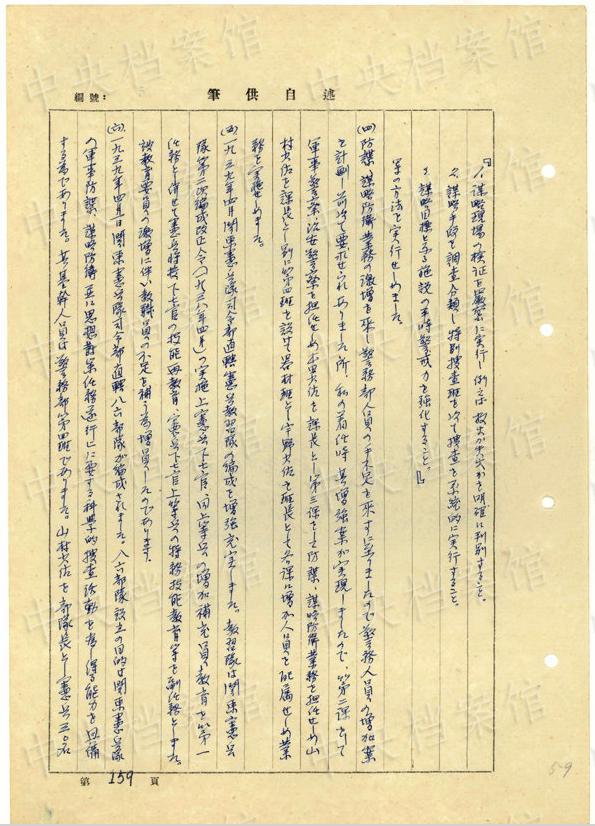 編號：
筆供自述
『1、謀略現場の検証を厳密に実行し例えば放火か失火かを明確に判別すること。
2、謀略手段を調査分類し特別捜査班を以て捜査を系統的に実行すること。
3、謀略目標となる施設の平時警戒力を強化すること。』
等の方法を実行せしめました。
(四)防諜、謀略防衛業務の激増を来し警務部人員の手不足を来すに至りましたので警務人員の増加案
を計画し 前次て要求せられありました所、私の着任時 其増強案が実現しましたので、第二課をして
軍事警察、治安警察を担任せしめ 少佐を課長とし 第三課をして防諜、謀略防衛業務を担任せしめ山
村少佐を課長とし別に第四班を設け器材班とし宇野少佐を班長とし各課に増加人員を配属せしめ業
務を実施せしめました。
(五)一九三九年四月関東憲兵隊司令部直轄憲兵教習隊の編成を増強充実しました。教習隊は関東憲兵
隊第二次編成改正令(一九三八年四月)の実施上憲兵下士官、同上等兵の増加補充員の教育を第一
任務と併せて憲兵将校下士官の技能再教育、憲兵下士官上等兵の特務技能教育等を副任務としました。
該教育要員の激増に伴い教職員の不足を補う為増員したのであります。
(六)一九三九年四月 日関東憲兵隊司令部直轄八六部隊が編成されました。八六部隊設立の目的は関東憲兵隊
の軍事防諜、謀略防衛並に思想対策任務遂行上に要する科学的捜査活動を為し得る能力を具備
する為でありました。其基幹人員は警務部第四班でありました。山村少佐を部隊長とし憲兵三〇名
第159頁
59
中央档案馆